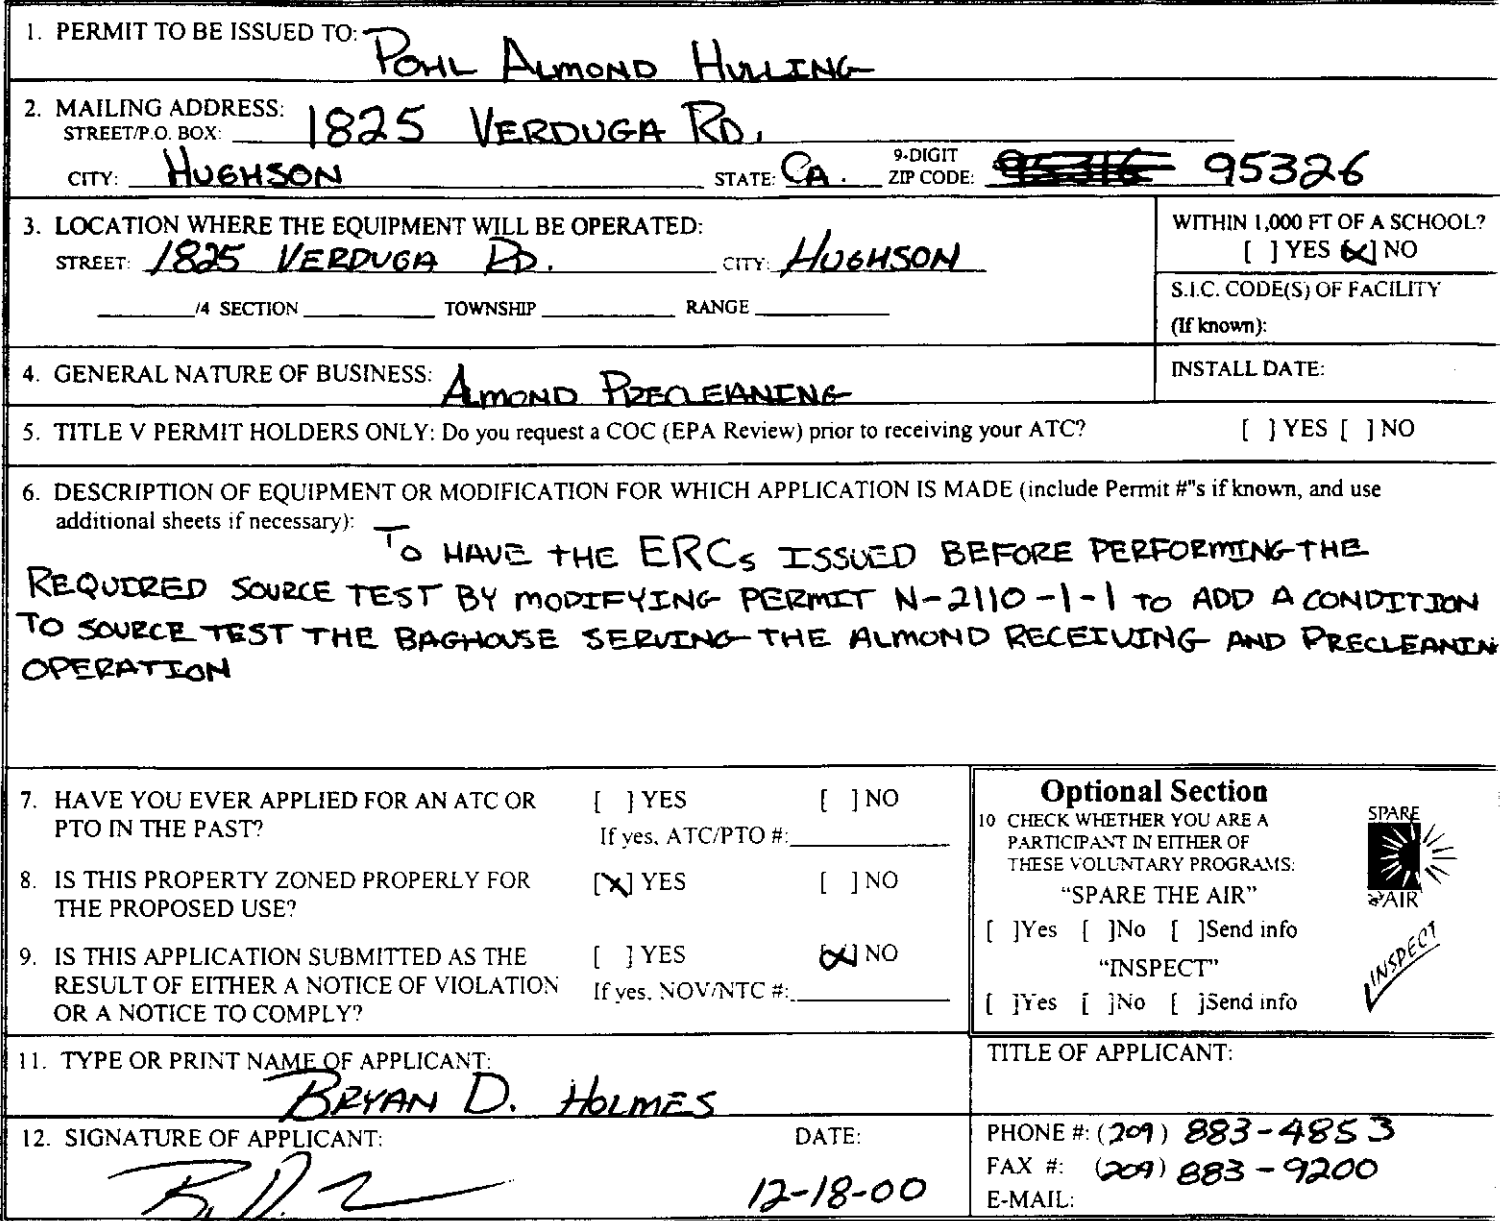 1. PERMIT TO BE ISSUED TO: POHL ALMOND HULLING
2. MAILING ADDRESS:
STREET/P.O. BOX: 1825 VERDUGA RD.
CITY: HUGHSON STATE: CA. 9-DIGIT ZIP CODE: 95316 95326
3. LOCATION WHERE THE EQUIPMENT WILL BE OPERATED:
STREET: 1825 VERDUGA RD. CITY: HUGHSON
/4 SECTION TOWNSHIP RANGE
WITHIN 1,000 FT OF A SCHOOL?
[ ] YES [X] NO
S.I.C. CODE(S) OF FACILITY
(If known):
4. GENERAL NATURE OF BUSINESS: ALMOND PRECLEANING
INSTALL DATE:
5. TITLE V PERMIT HOLDERS ONLY: Do you request a COC (EPA Review) prior to receiving your ATC? [ ] YES [ ] NO
6. DESCRIPTION OF EQUIPMENT OR MODIFICATION FOR WHICH APPLICATION IS MADE (include Permit #"s if known, and use
additional sheets if necessary):
TO HAVE THE ERCs ISSUED BEFORE PERFORMING THE
REQUIRED SOURCE TEST BY MODIFYING PERMIT N-2110-1-1 TO ADD A CONDITION
TO SOURCE TEST THE BAGHOUSE SERVING THE ALMOND RECEIVING AND PRECLEANIN
OPERATION
7. HAVE YOU EVER APPLIED FOR AN ATC OR [ ] YES [ ] NO
PTO IN THE PAST? If yes, ATC/PTO #:
8. IS THIS PROPERTY ZONED PROPERLY FOR [X] YES [ ] NO
THE PROPOSED USE?
9. IS THIS APPLICATION SUBMITTED AS THE [ ] YES [X] NO
RESULT OF EITHER A NOTICE OF VIOLATION If yes, NOV/NTC #:
OR A NOTICE TO COMPLY?
Optional Section
10 CHECK WHETHER YOU ARE A
PARTICIPANT IN EITHER OF
THESE VOLUNTARY PROGRAMS:
"SPARE THE AIR"
[ ]Yes [ ]No [ ]Send info
"INSPECT"
[ ]Yes [ ]No [ ]Send info
SPARE
AIR
INSPECT
11. TYPE OR PRINT NAME OF APPLICANT:
BRYAN D. HOLMES
TITLE OF APPLICANT:
12. SIGNATURE OF APPLICANT: DATE:
12-18-00
PHONE #: (209) 883-4853
FAX #: (209) 883-9200
E-MAIL: